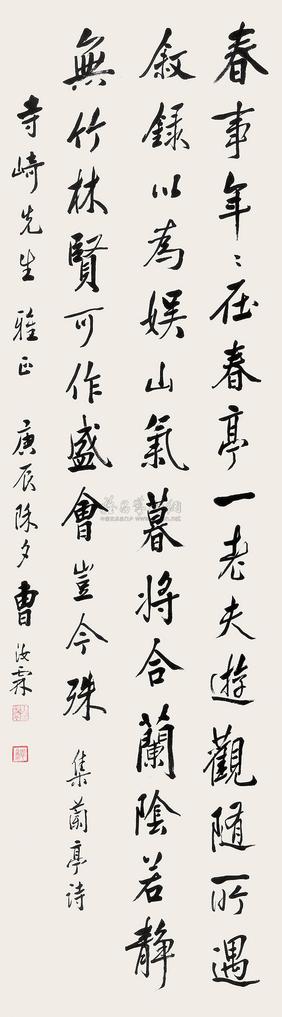 春事年々在春亭一老夫遊觀随所遇
敘錄以為娱山氣暮將合蘭陰若靜
無竹林賢可作盛會豈今殊
集蘭亭诗
寺崎先生雅正 庚辰除夕曹汝霖